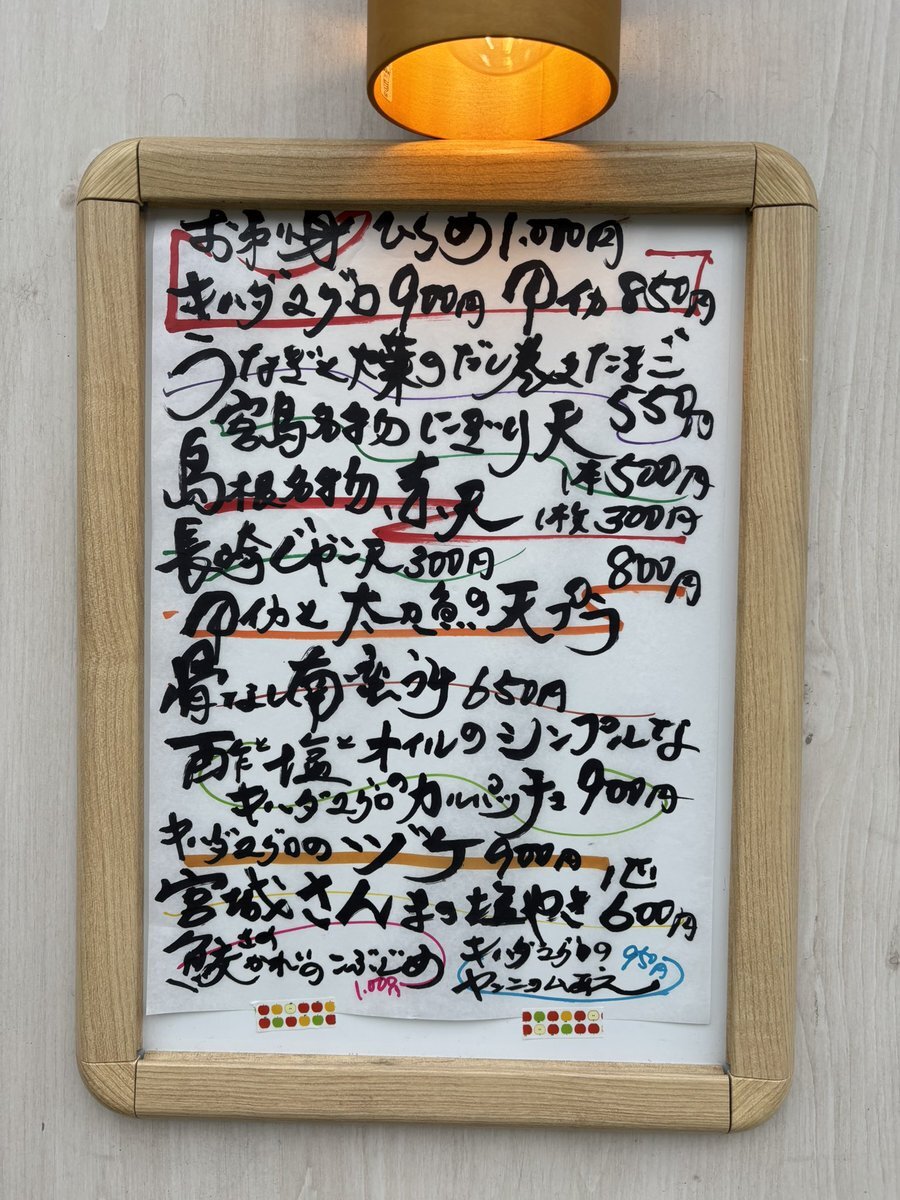 お刺身 ひらめ 1.000円
キハダマグロ 900円 甲イカ 850円
うなぎと大葉のだし巻きたまご
550円
宮島名物 にぎり天
1本 500円
島根名物 赤天 1枚 300円
長崎じゃこ天 300円
800円
甲イカと太刀魚の天プラ
骨なし南蛮漬け 650円
酢と塩とオイルのシンプルな
キハダマグロのカルパッチョ 900円
キハダマグロのヅケ 900円
宮城さんまの塩やき 1匹 600円
鮫かれいのこぶじめ
さめ
1.000円
キハダマグロの
ヤンニョム和え
950円